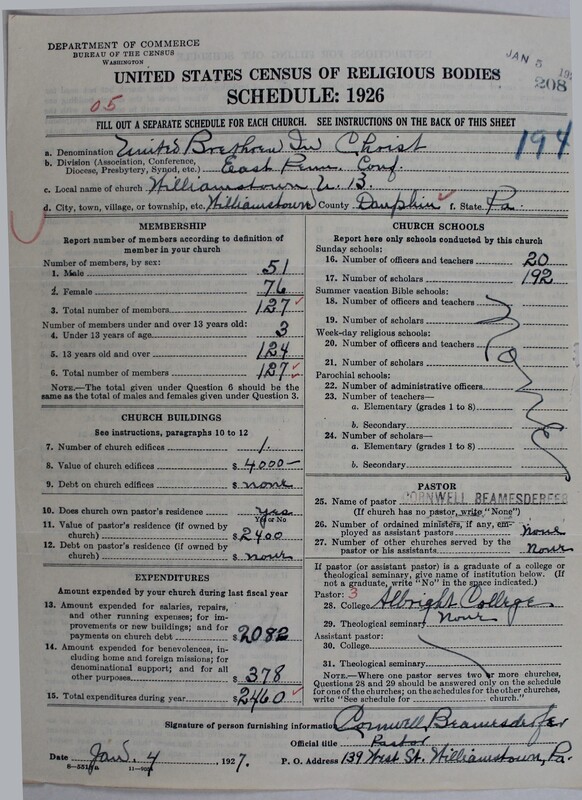 DEPARTMENT OF COMMERCE
BUREAU OF THE CENSUS
WASHINGTON
JAN 5 19
208
UNITED STATES CENSUS OF RELIGIOUS BODIES
SCHEDULE: 1926
05
FILL OUT A SEPARATE SCHEDULE FOR EACH CHURCH. SEE INSTRUCTIONS ON THE BACK OF THIS SHEET
194
a. Denomination United Brethren In Christ
b. Division (Association, Conference, Diocese, Presbytery, Synod, etc.) East Penn. Conf.
c. Local name of church Williamstown U. B.
d. City, town, village, or township, etc. Williamstown County Dauphin f. State Pa.
MEMBERSHIP
Report number of members according to definition of member in your church
Number of members, by sex:
1. Male 51
2. Female 76
3. Total number of members 127
Number of members under and over 13 years old:
4. Under 13 years of age 3
5. 13 years old and over 124
6. Total number of members 127
NOTE.—The total given under Question 6 should be the same as the total of males and females given under Question 3.
CHURCH BUILDINGS
See instructions, paragraphs 10 to 12
7. Number of church edifices 1.
8. Value of church edifices $ 4000-
9. Debt on church edifices $ none
10. Does church own pastor's residence yes
Yes or No
11. Value of pastor's residence (if owned by church) $ 2400
12. Debt on pastor's residence (if owned by church) $ none
EXPENDITURES
Amount expended by your church during last fiscal year
13. Amount expended for salaries, repairs, and other running expenses; for improvements or new buildings; and for payments on church debt $ 2082
14. Amount expended for benevolences, including home and foreign missions; for denominational support; and for all other purposes $ 378
15. Total expenditures during year $ 2460
CHURCH SCHOOLS
Report here only schools conducted by this church
Sunday schools:
16. Number of officers and teachers 20
17. Number of scholars 192
Summer vacation Bible schools:
18. Number of officers and teachers
19. Number of scholars
Week-day religious schools:
20. Number of officers and teachers
21. Number of scholars
Parochial schools:
22. Number of administrative officers
23. Number of teachers—
a. Elementary (grades 1 to 8)
b. Secondary
24. Number of scholars—
a. Elementary (grades 1 to 8)
b. Secondary
None
PASTOR
25. Name of pastor CORNWELL BEAMESDERFER
(If church has no pastor, write "None")
26. Number of ordained ministers, if any, employed as assistant pastors None
27. Number of other churches served by the pastor or his assistants None
If pastor (or assistant pastor) is a graduate of a college or theological seminary, give name of institution below. (If not a graduate, write "No" in the space indicated.)
Pastor: 3
28. College Albright College
29. Theological seminary None
Assistant pastor:
30. College
31. Theological seminary
NOTE.—Where one pastor serves two or more churches, Questions 28 and 29 should be answered only on the schedule for one of the churches; on the schedules for the other churches, write "See schedule for ... church."
Signature of person furnishing information Cornwell Beamesderfer
Official title Pastor
Date Jan. 4 1927. P. O. Address 139 West St. Williamstown, Pa.